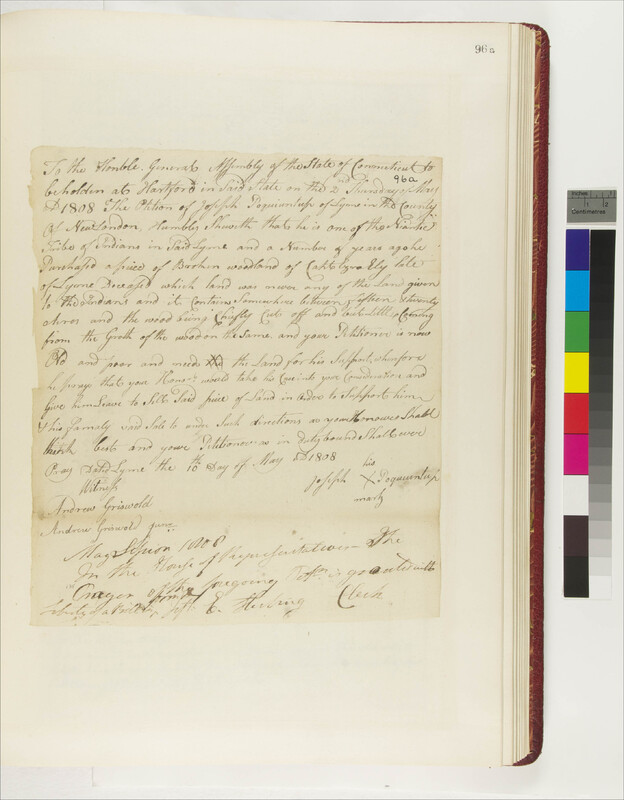 96a
To the Honble. General Assembly of the State of Connecticut to
be holden at Hartford in Said State on the 2nd Thursday of May
96a
AD 1808 The Petition of Joseph Poquiantup of Lyme in the County
of New London. Humbly Sheweth that he is one of the Niantic
Tribe of Indians in Said Lyme and a Number of years ago he
Purchased a piece of Broken woodland of Capt Ezra Ely late
of Lyme Deceased which land was never any of the Land given
to the Indians and it Contains Somewhere between fifteen & twenty
Acres and the wood being Chiefly Cut off and but little Coming
from the Groth of the wood on the same. and your Petitioner is now
Old and poor and needs the Land for his Support, wherefore
he prays that your Honors would take his Case into your Consideration and
Give him Leave to Sell Said piece of Land in order to Support him
& his family Said Sale to under Such directions as your Honours Shall
think best and your Petitioner as in duty bound Shall ever
Pray Datd Lyme the 10th Day of May AD 1808
Witness
Joseph his X Poquiantup
mark
Andrew Griswold
Andrew Griswold junr
May Session 1808
In the House of Representatives The
Prayer of the foregoing Petn is granted with
Liberty of a Bill &c
E. Clerk
Inches
Centimetres